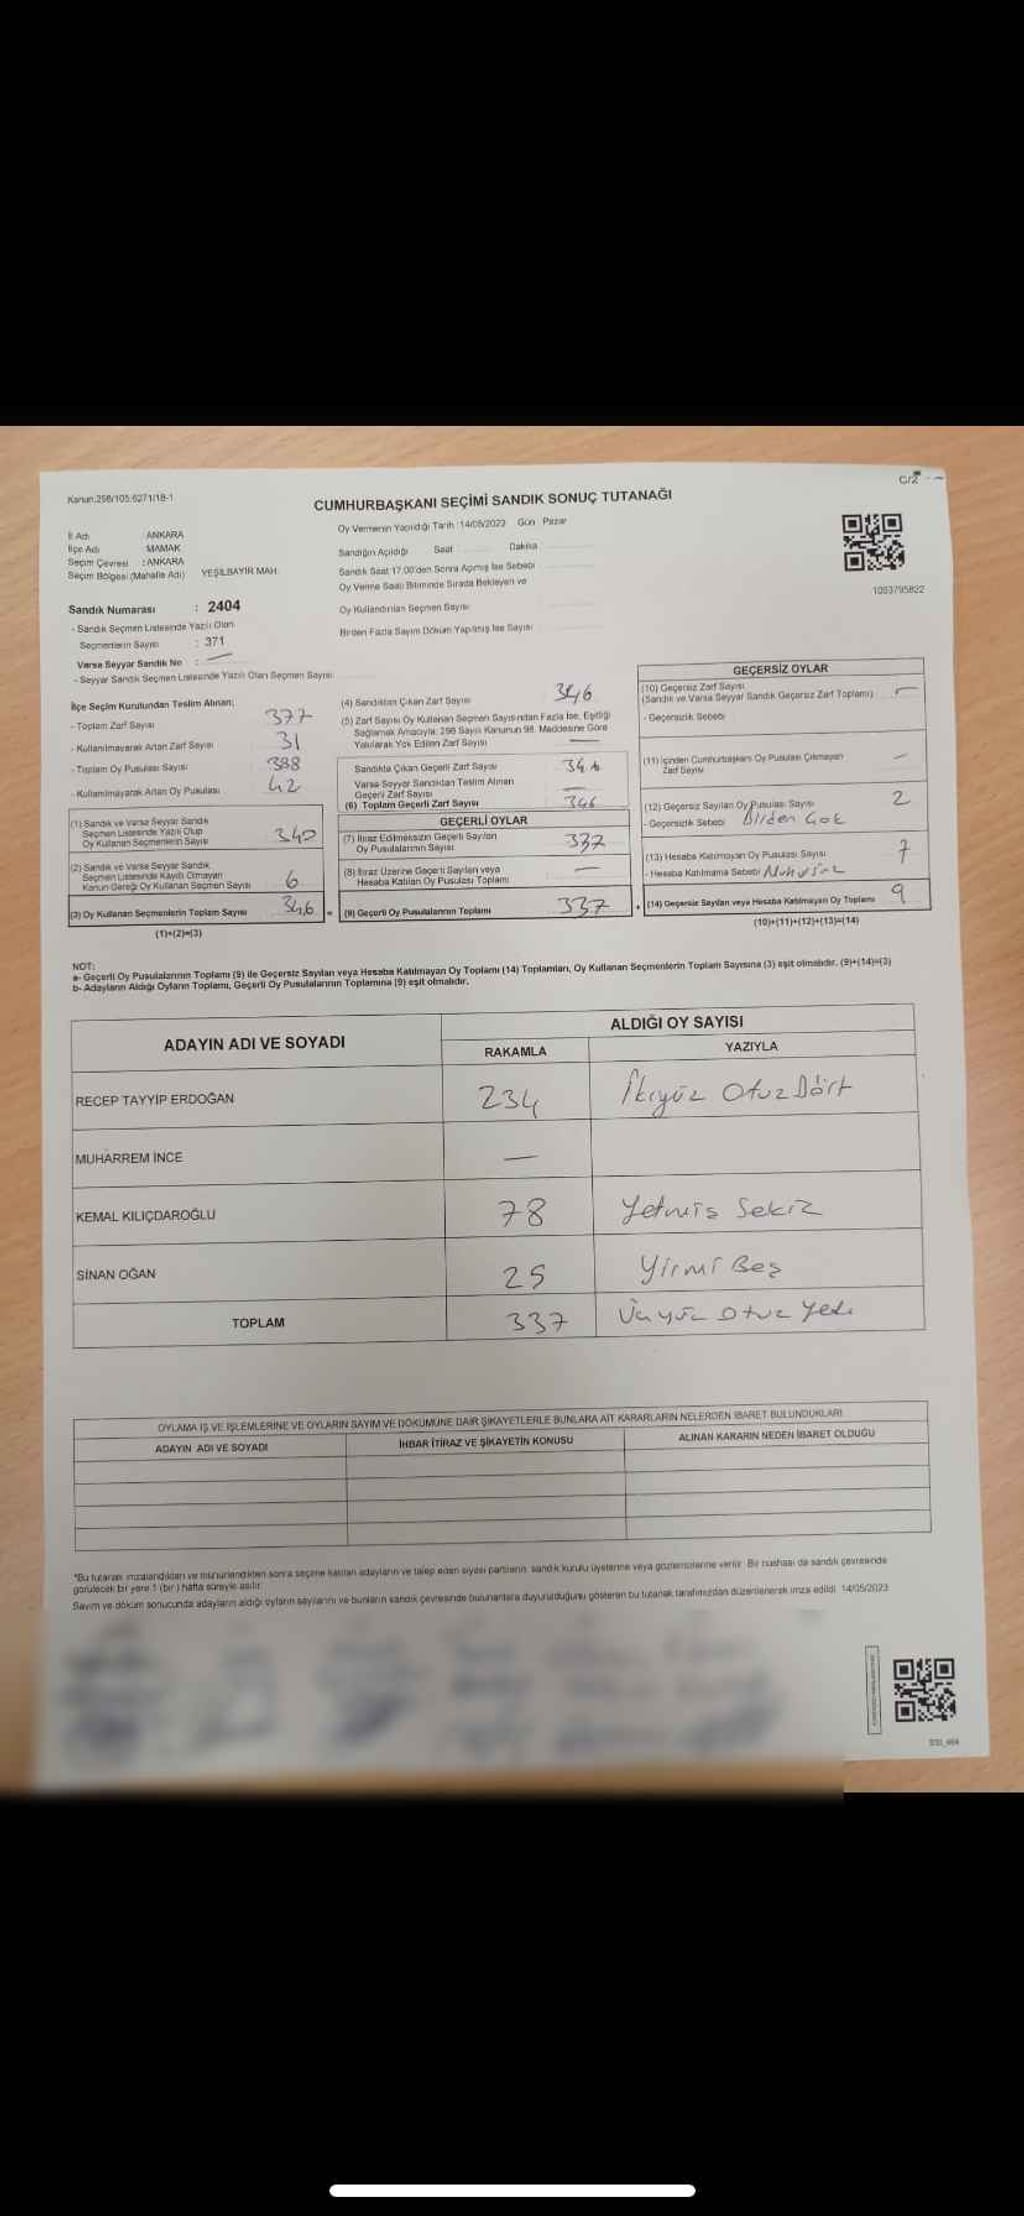 Kanun:298/105,6271/18-1
C/2
CUMHURBAŞKANI SEÇİMİ SANDIK SONUÇ TUTANAĞI
Oy Vermenin Yapıldığı Tarih :14/05/2023 Gün Pazar
İl Adı : ANKARA
İlçe Adı MAMAK
Seçim Çevresi : ANKARA
Seçim Bölgesi (Mahalle Adı) YEŞİLBAYIR MAH.
Sandığın Açıldığı Saat Dakika
Sandık Saat 17.00'den Sonra Açmış İse Sebebi
Oy Verme Saati Bitiminde Sırada Bekleyen ve
Oy Kullandırılan Seçmen Sayısı
Birden Fazla Sayım Döküm Yapılmış İse Sayısı
1093795822
Sandık Numarası : 2404
- Sandık Seçmen Listesinde Yazılı Olan
Seçmenlerin Sayısı : 371
Varsa Seyyar Sandık No : —
- Seyyar Sandık Seçmen Listesinde Yazılı Olan Seçmen Sayısı
İlçe Seçim Kurulundan Teslim Alınan;
- Toplam Zarf Sayısı 377
- Kullanılmayarak Artan Zarf Sayısı 31
- Toplam Oy Pusulası Sayısı 388
- Kullanılmayarak Artan Oy Pusulası 42
(1) Sandık ve Varsa Seyyar Sandık
Seçmen Listesinde Yazılı Olup
Oy Kullanan Seçmenlerin Sayısı 340
(2) Sandık ve Varsa Seyyar Sandık
Seçmen Listesinde Kayıtlı Olmayan
Kanun Gereği Oy Kullanan Seçmen Sayısı 6
(3) Oy Kullanan Seçmenlerin Toplam Sayısı 346 =
(1)+(2)=(3)
(4) Sandıktan Çıkan Zarf Sayısı 346
(5) Zarf Sayısı Oy Kullanan Seçmen Sayısından Fazla İse, Eşitliği
Sağlamak Amacıyla, 298 Sayılı Kanunun 98. Maddesine Göre
Yakılarak Yok Edilen Zarf Sayısı —
Sandıkta Çıkan Geçerli Zarf Sayısı
Varsa Seyyar Sandıktan Teslim Alınan
Geçerli Zarf Sayısı —
(6) Toplam Geçerli Zarf Sayısı 346
GEÇERLİ OYLAR
(7) İtiraz Edilmeksizin Geçerli Sayılan
Oy Pusulalarının Sayısı 337
(8) İtiraz Üzerine Geçerli Sayılan veya
Hesaba Katılan Oy Pusulası Toplamı —
(9) Geçerli Oy Pusulalarının Toplamı 337 +
GEÇERSİZ OYLAR
(10) Geçersiz Zarf Sayısı
(Sandık ve Varsa Seyyar Sandık Geçersiz Zarf Toplamı) —
- Geçersizlik Sebebi
(11) İçinden Cumhurbaşkanı Oy Pusulası Çıkmayan
Zarf Sayısı —
(12) Geçersiz Sayılan Oy Pusulası Sayısı 2
- Geçersizlik Sebebi Birden Çok
(13) Hesaba Katılmayan Oy Pusulası Sayısı 7
- Hesaba Katılmama Sebebi Mühürsüz
(14) Geçersiz Sayılan veya Hesaba Katılmayan Oy Toplamı 9
(10)+(11)+(12)+(13)=(14)
NOT:
a- Geçerli Oy Pusulalarının Toplamı (9) ile Geçersiz Sayılan veya Hesaba Katılmayan Oy Toplamı (14) Toplamları, Oy Kullanan Seçmenlerin Toplam Sayısına (3) eşit olmalıdır. (9)+(14)=(3)
b- Adayların Aldığı Oyların Toplamı, Geçerli Oy Pusulalarının Toplamına (9) eşit olmalıdır.
ADAYIN ADI VE SOYADI ALDIĞI OY SAYISI
RAKAMLA YAZIYLA
RECEP TAYYİP ERDOĞAN 234 İkiyüz Otuz Dört
MUHARREM İNCE —
KEMAL KILIÇDAROĞLU 78 Yetmiş Sekiz
SİNAN OĞAN 25 Yirmi Beş
TOPLAM 337 Üçyüz Otuz Yedi
OYLAMA İŞ VE İŞLEMLERİNE VE OYLARIN SAYIM VE DÖKÜMÜNE DAİR ŞİKAYETLERLE BUNLARA AİT KARARLARIN NELERDEN İBARET BULUNDUKLARI
ADAYIN ADI VE SOYADI İHBAR İTİRAZ VE ŞİKAYETİN KONUSU ALINAN KARARIN NEDEN İBARET OLDUĞU
*Bu tutanak imzalandıktan ve mühürlendikten sonra seçime katılan adayların ve talep eden siyasi partilerin, sandık kurulu üyelerine veya gözlemcilerine verilir. Bir nüshası da sandık çevresinde
görülecek bir yere 1 (bir) hafta süreyle asılır.
Sayım ve döküm sonucunda adayların aldığı oyların sayılarını ve bunların sandık çevresinde bulunanlara duyurulduğunu gösteren bu tutanak tarafımızdan düzenlenerek imza edildi. 14/05/2023